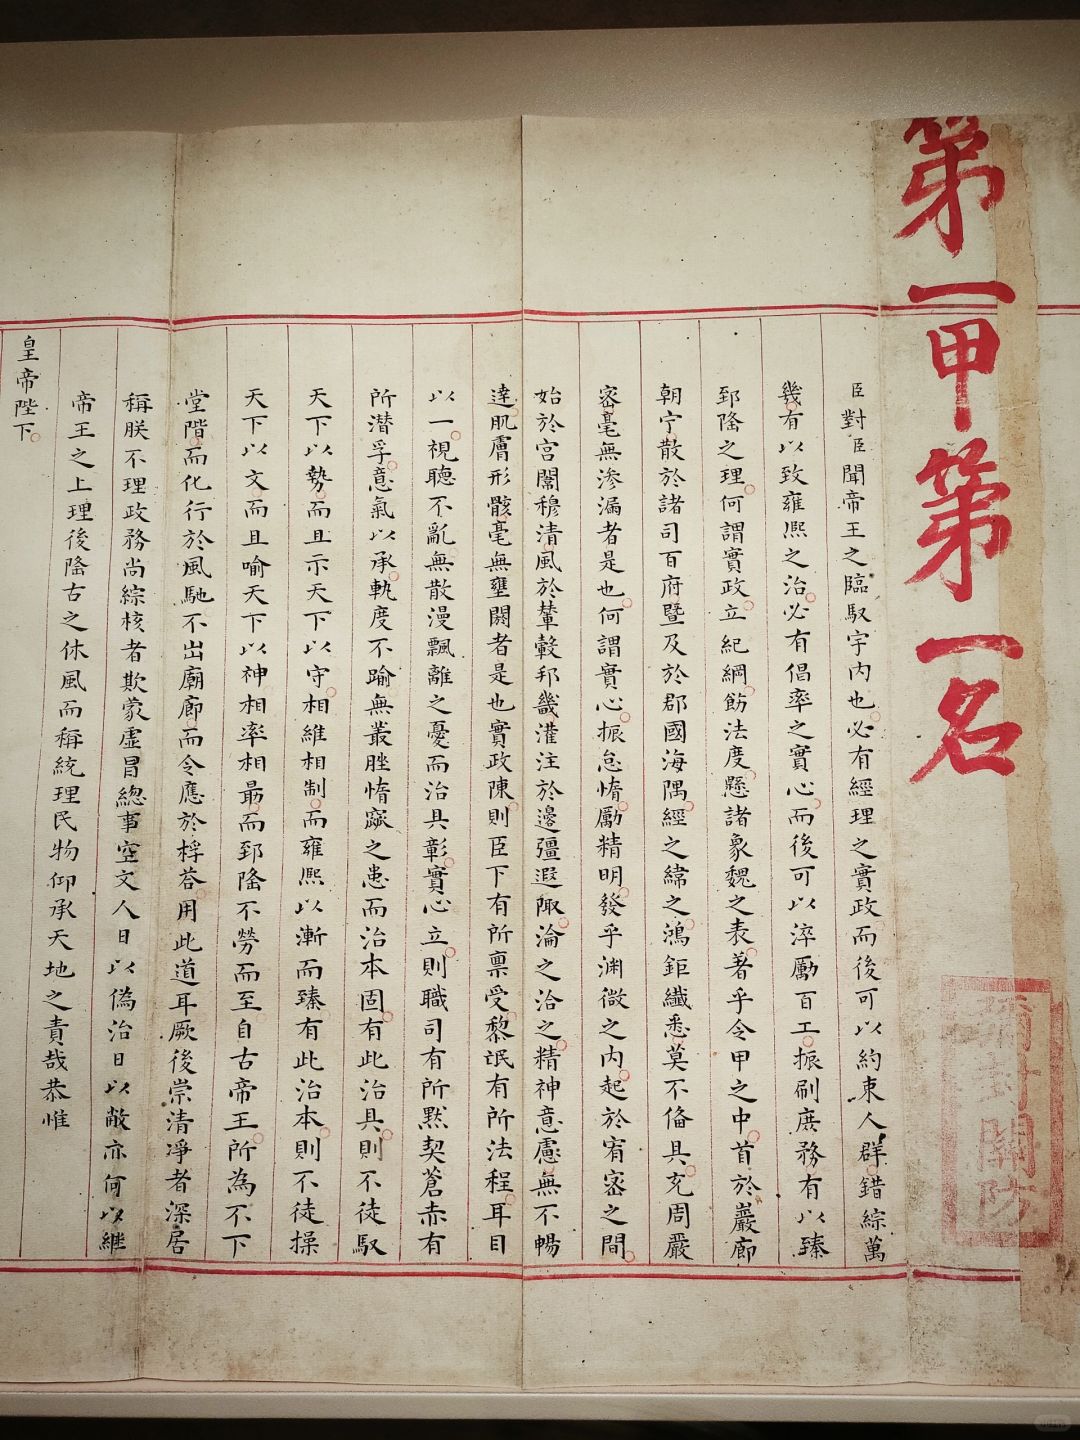 第一甲第一名
彌封關防
臣對臣聞帝王之臨馭宇內也必有經理之實政而後可以約束人群錯綜萬
幾有以致雍熙之治必有倡率之實心而後可以淬勵百工振刷庶務有以臻
郅隆之理何謂實政立紀綱飭法度懸諸象魏之表著乎令甲之中首於巖廊
朝宁散於諸司百府暨及於郡國海隅經之緯之鴻鉅纖悉莫不俻具充周嚴
密毫無滲漏者是也何謂實心振怠惰勵精明發乎渊微之内起於宥密之間
始於宮闈穆清風於輦轂邦畿灌注於邊疆遐陬淪之洽之精神意慮無不暢
達肌膚形骸毫無壅閼者是也實政陳則臣下有所禀受黎氓有所法程耳目
以一視聽不亂無散漫飄離之憂而治具彰實心立則職司有所默契蒼赤有
所潜孚意氣以承軌度不踰無叢脞惰窳之患而治本固有此治具則不徒馭
天下以勢而且示天下以守相維相制而雍熙以漸而臻有此治本則不徒操
天下以文而且喻天下以神相率相最而郅隆不勞而至自古帝王所為不下
堂階而化行於風馳不出廟廊而令應於桴荅用此道耳厥後崇清凈者深居
稱朕不理政務尚綜核者欺蒙虛冒總事空文人日以偽治日以敝亦何以継
帝王之上理後隆古之休風而稱統理民物仰承天地之責哉恭惟
皇帝陛下